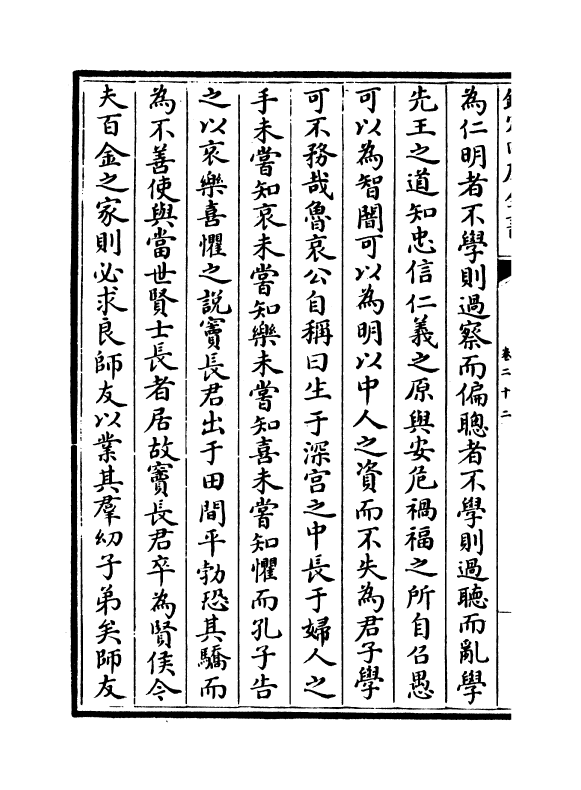 欽定四庫全書
卷二十二
為仁明者不學則過察而偏聰者不學則過聽而亂學
先王之道知忠信仁義之原與安危禍福之所自召愚
可以為智闇可以為明以中人之資而不失為君子學
可不務哉魯哀公自稱曰生于深宮之中長于婦人之
手未嘗知哀未嘗知樂未嘗知喜未嘗知懼而孔子告
之以哀樂喜懼之說竇長君出于田間平勃恐其驕而
為不善使與當世賢士長者居故竇長君卒為賢侯今
夫百金之家則必求良師友以業其羣幼子弟矣師友